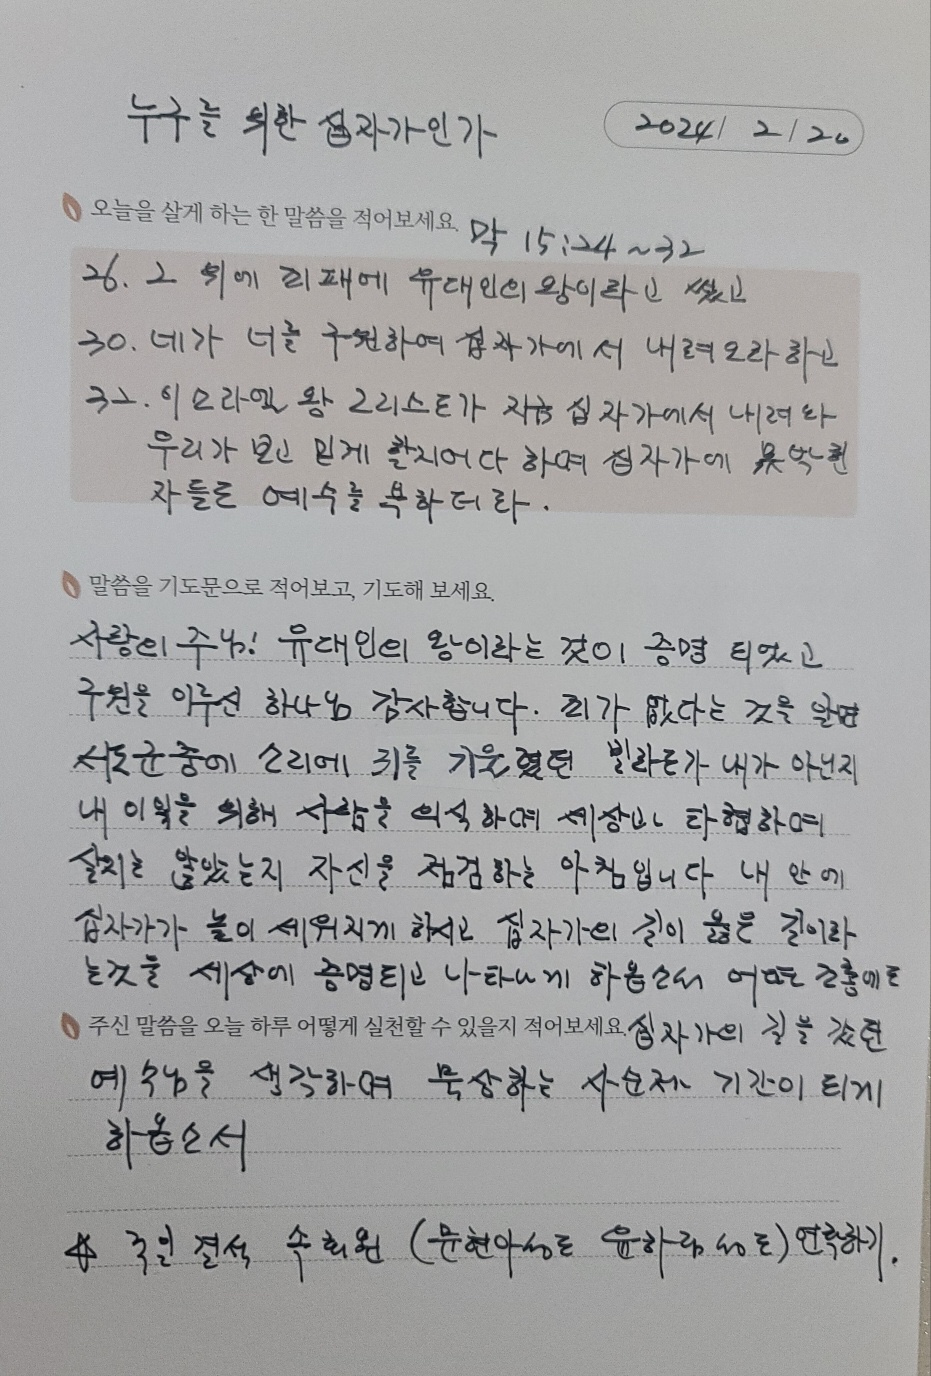 누구를 위한 십자가인가
2024/ 2/20
오늘을 살게 하는 한 말씀을 적어보세요.
막 15:24~32
26. 그 위에 죄패에 유대인의 왕이라고 썼고
30. 네가 너를 구원하여 십자가에서 내려오라 하고
32. 이스라엘 왕 그리스도가 지금 십자가에서 내려와
우리가 보고 믿게 할지어다 하며 십자가에 못박힌
자들도 예수를 욕하더라.
말씀을 기도문으로 적어보고, 기도해 보세요.
사랑의 주님! 유대인의 왕이라는 것이 증명 되었고
구원을 이루신 하나님 감사합니다. 죄가 없다는 것을 알면
서도 군중에 소리에 귀를 기울였던 빌라도가 내가 아닌지
내 이익을 위해 사람을 의식하며 세상과 타협하며
살지는 않았는지 자신을 점검하는 아침입니다 내 안에
십자가가 높이 세워지게 하시고 십자가의 길이 옳은 길이라
는것을 세상에 증명되고 나타나게 하옵소서 어떤 조롱에도
주신 말씀을 오늘 하루 어떻게 실천할 수 있을지 적어보세요.
십자가의 길을 갔던
예수님을 생각하며 묵상하는 사순절 기간이 되게
하옵소서
주일 결석 속회원 (문현아성도 윤하림성도) 연락하기.